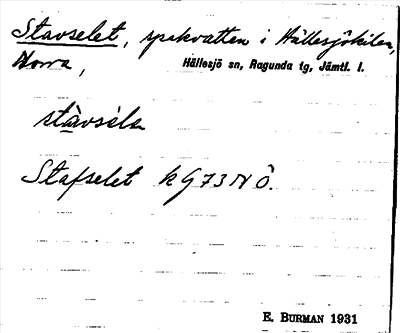 Stavselet, spakvatten i Hällesjökilen,
Norra, Hällesjö sn, Ragunda tg, Jämtl. l.
stàvsélɐ
Stafselet k G73NÖ.
E. BURMAN 1931